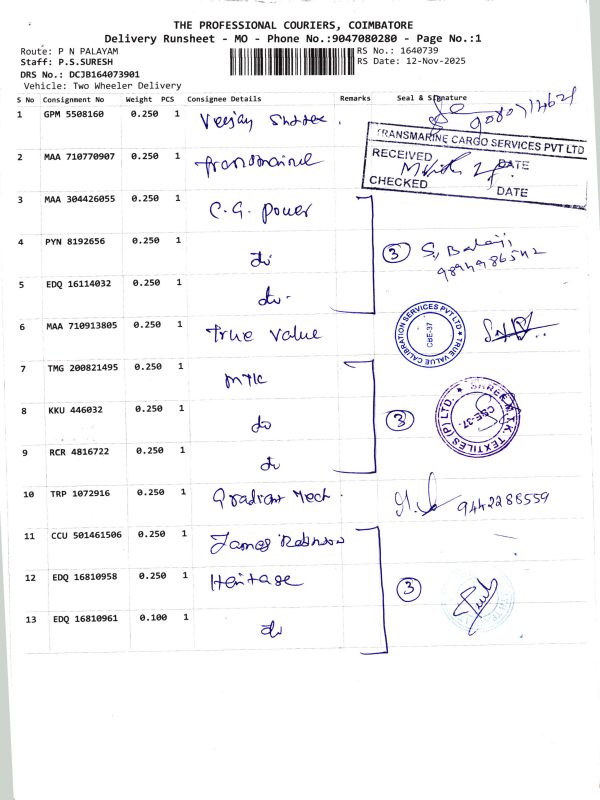 THE PROFESSIONAL COURIERS, COIMBATORE
Delivery Runsheet - MO - Phone No.:9047080280 - Page No.:1
Route: P N PALAYAM
RS No.: 1640739
Staff: P.S.SURESH
RS Date: 12-Nov-2025
DRS No.: DCJB164073901
Vehicle: Two Wheeler Delivery
S No Consignment No Weight PCS Consignee Details Remarks Seal & Signature
1 GPM 5508160 0.250 1 Veejay
TRANSMARINE CARGO SERVICES PVT LTD
RECEIVED DATE
CHECKED DATE
2 MAA 710770907 0.250 1
3 MAA 304426055 0.250 1 C.G. Power
4 PYN 8192656 0.250 1 do 3 S. Balaji
9894986542
5 EDQ 16114032 0.250 1 do
6 MAA 710913805 0.250 1 True Value
TRUE VALUE CALIBRATION SERVICES PVT LTD
CBE-37
7 TMG 200821495 0.250 1 MTK
8 KKU 446032 0.250 1 do 3
SHREE M.T.K. TEXTILES (P) LTD.
CBE-37.
9 RCR 4816722 0.250 1 do
10 TRP 1072916 0.250 1 Mech. 9442288559
11 CCU 501461506 0.250 1 James Robinson
12 EDQ 16810958 0.250 1 Heritage 3
13 EDQ 16810961 0.100 1 do